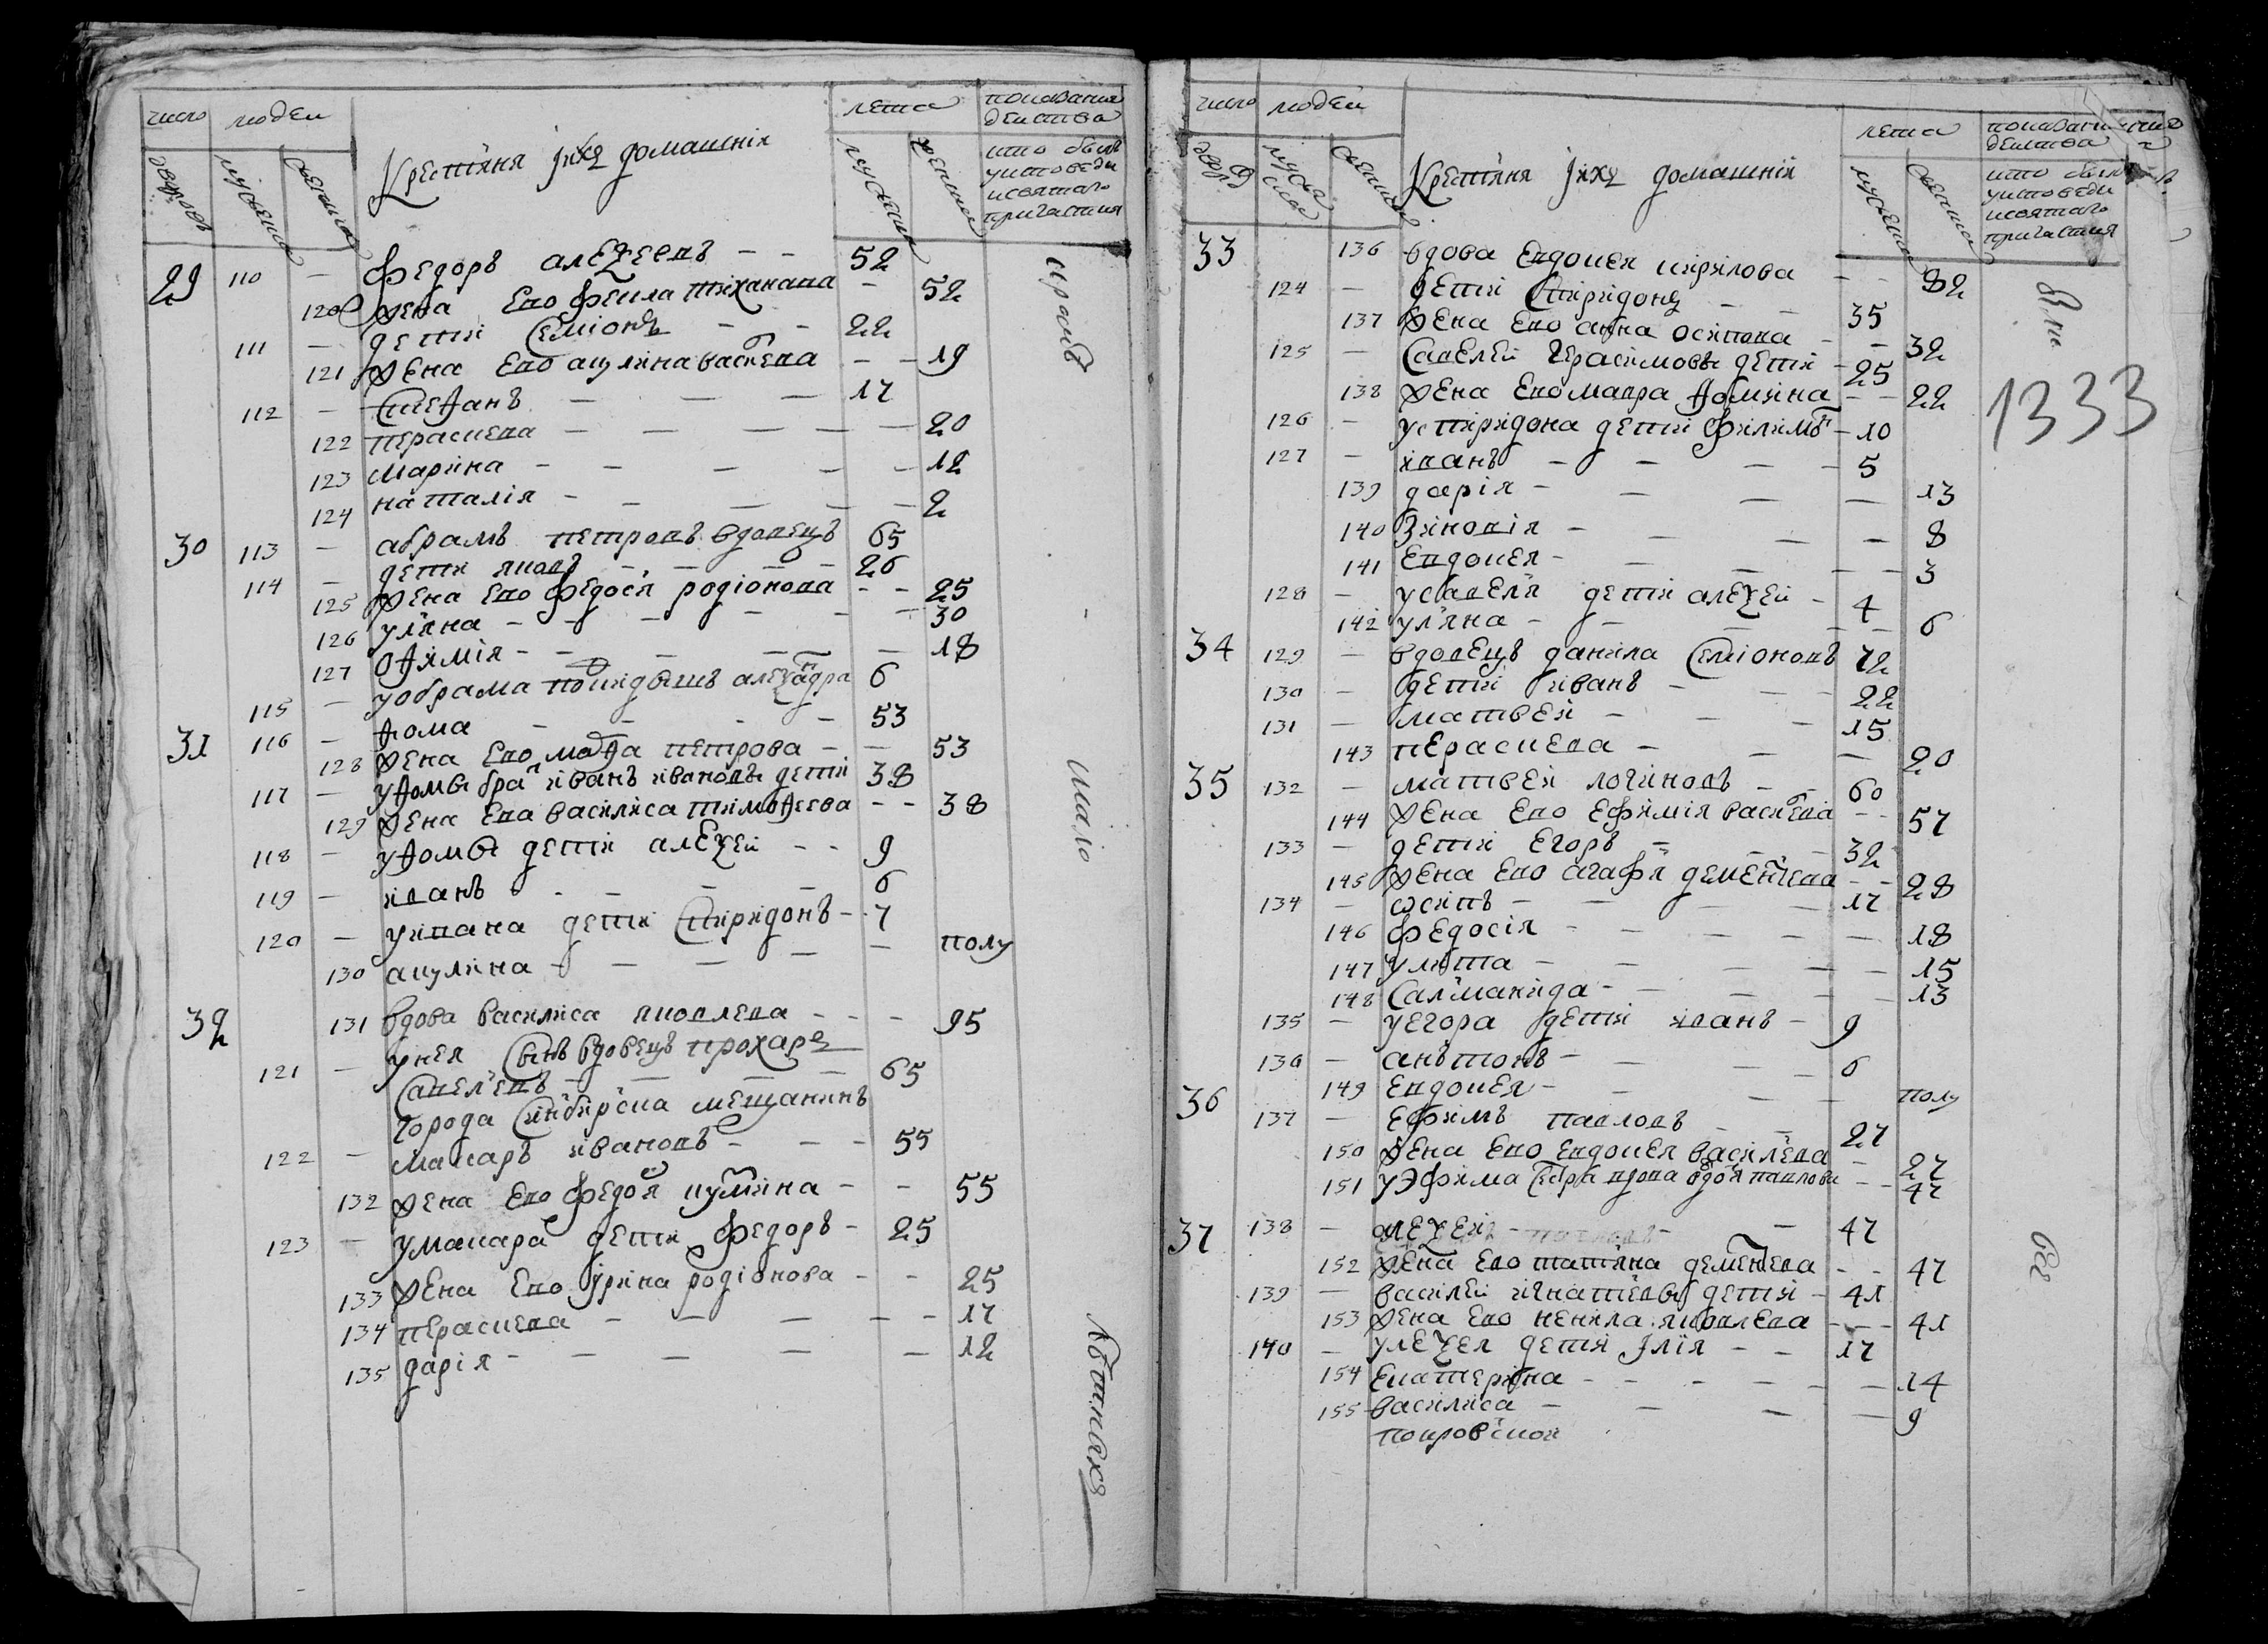 число людеи
Крестьяня и ихъ домашнія
лета
показание деиства
дворовъ мужеска женска
мужеска женска
кто былъ у исповеди и святаго причастия
29 110 — федоръ алеѯеевъ — — 52
120 жена ево феѵла тиханава — 52
111 — дети семіонъ — — 22
121 жена ево акулина василева — — 19
112 — стеѳанъ — — — 17
122 пераскева — — — — — 20
123 марина — — — — — 12
124 наталія — — — — — 2
30 113 — абрамъ петровъ вдовецъ 65
114 — дети яковъ — — — 26
125 жена ево федосья родіонова — — 25
126 ульяна — — — — — 30
127 оѳимія — — — — 18
115 — у обрама покидышъ алеѯандра 6
31 116 — ѳома — — — — 53
128 жена ево марѳа петрова — — 53
117 — у ѳомы братъ иванъ ивановы дети 38
129 жена ева василиса тимоѳеева — — 38
118 — у ѳомы дети алеѯеи — — 9
119 — иванъ — — — — 6
120 — у ивана дети спиридонъ — 7
130 акулина — — — — — полу
32 131 вдова василиса яковлева — — — 95
121 — у нея сынъ вдовецъ прохаръ
савельевъ — — — — 65
города синбирска мещанинъ
122 — макаръ ивановъ — — — 55
132 жена ево федосья кузмина — — 55
123 — у макара дети федоръ — 25
133 жена ево ирина родіонова — — 25
134 пераскева — — — — — 17
135 дарія — — — — — 12
число людеи
Крестьяня и ихъ домашнія
лета
показание деиства
мужеска женска
мужеска женска
кто былъ у исповеди и святаго причастия
33 136 вдова евдокея кирилова — — 82
124 — дети спиридонъ — — 35
137 жена ево анна осипова — — 32
125 — савелеи герасимовы дети — 25
138 жена ево мавра ѳомина — — 22
126 — у спиридона дети филимонъ — 10
127 — иванъ — — — — 5
139 дарія — — — — 13
140 зиновія — — — — 8
141 евдокея — — — — 3
128 — у савелья дети алеѯеи — 4
142 ульяна — — — — — 6
34 129 — вдовецъ данила семіоновъ 72
130 — дети иванъ — — — 22
131 — матвеи — — — 15
143 пераскева — — — 20
35 132 — матвеи логиновъ — — 60
144 жена ево ефимія василева — — 57
133 — дети егоръ — — — 32
145 жена ево агафья дементева — — 28
134 — ѡсипъ — — — 17
146 федосія — — — — — 18
147 улита — — — — — 15
148 саламанида — — — — — 13
135 — у егора дети иванъ — 9
136 — анътонъ — — — 6
149 евдокея — — — — полу
36 137 — ефимъ павловъ — — 27
150 жена ево евдокея василева — 27
151 у эфима сестра вдова павлова — — 47
37 138 — алеѯеи — — 47
152 жена ево татьяна дементева — — 47
139 — василеи игнатьевы дети — 41
153 жена ево ненила яковлева — — — 41
140 — у алеѯея дети илія — — 17
154 екатерина — — — — — — 14
155 василиса — — — — 9
покровскои
1333